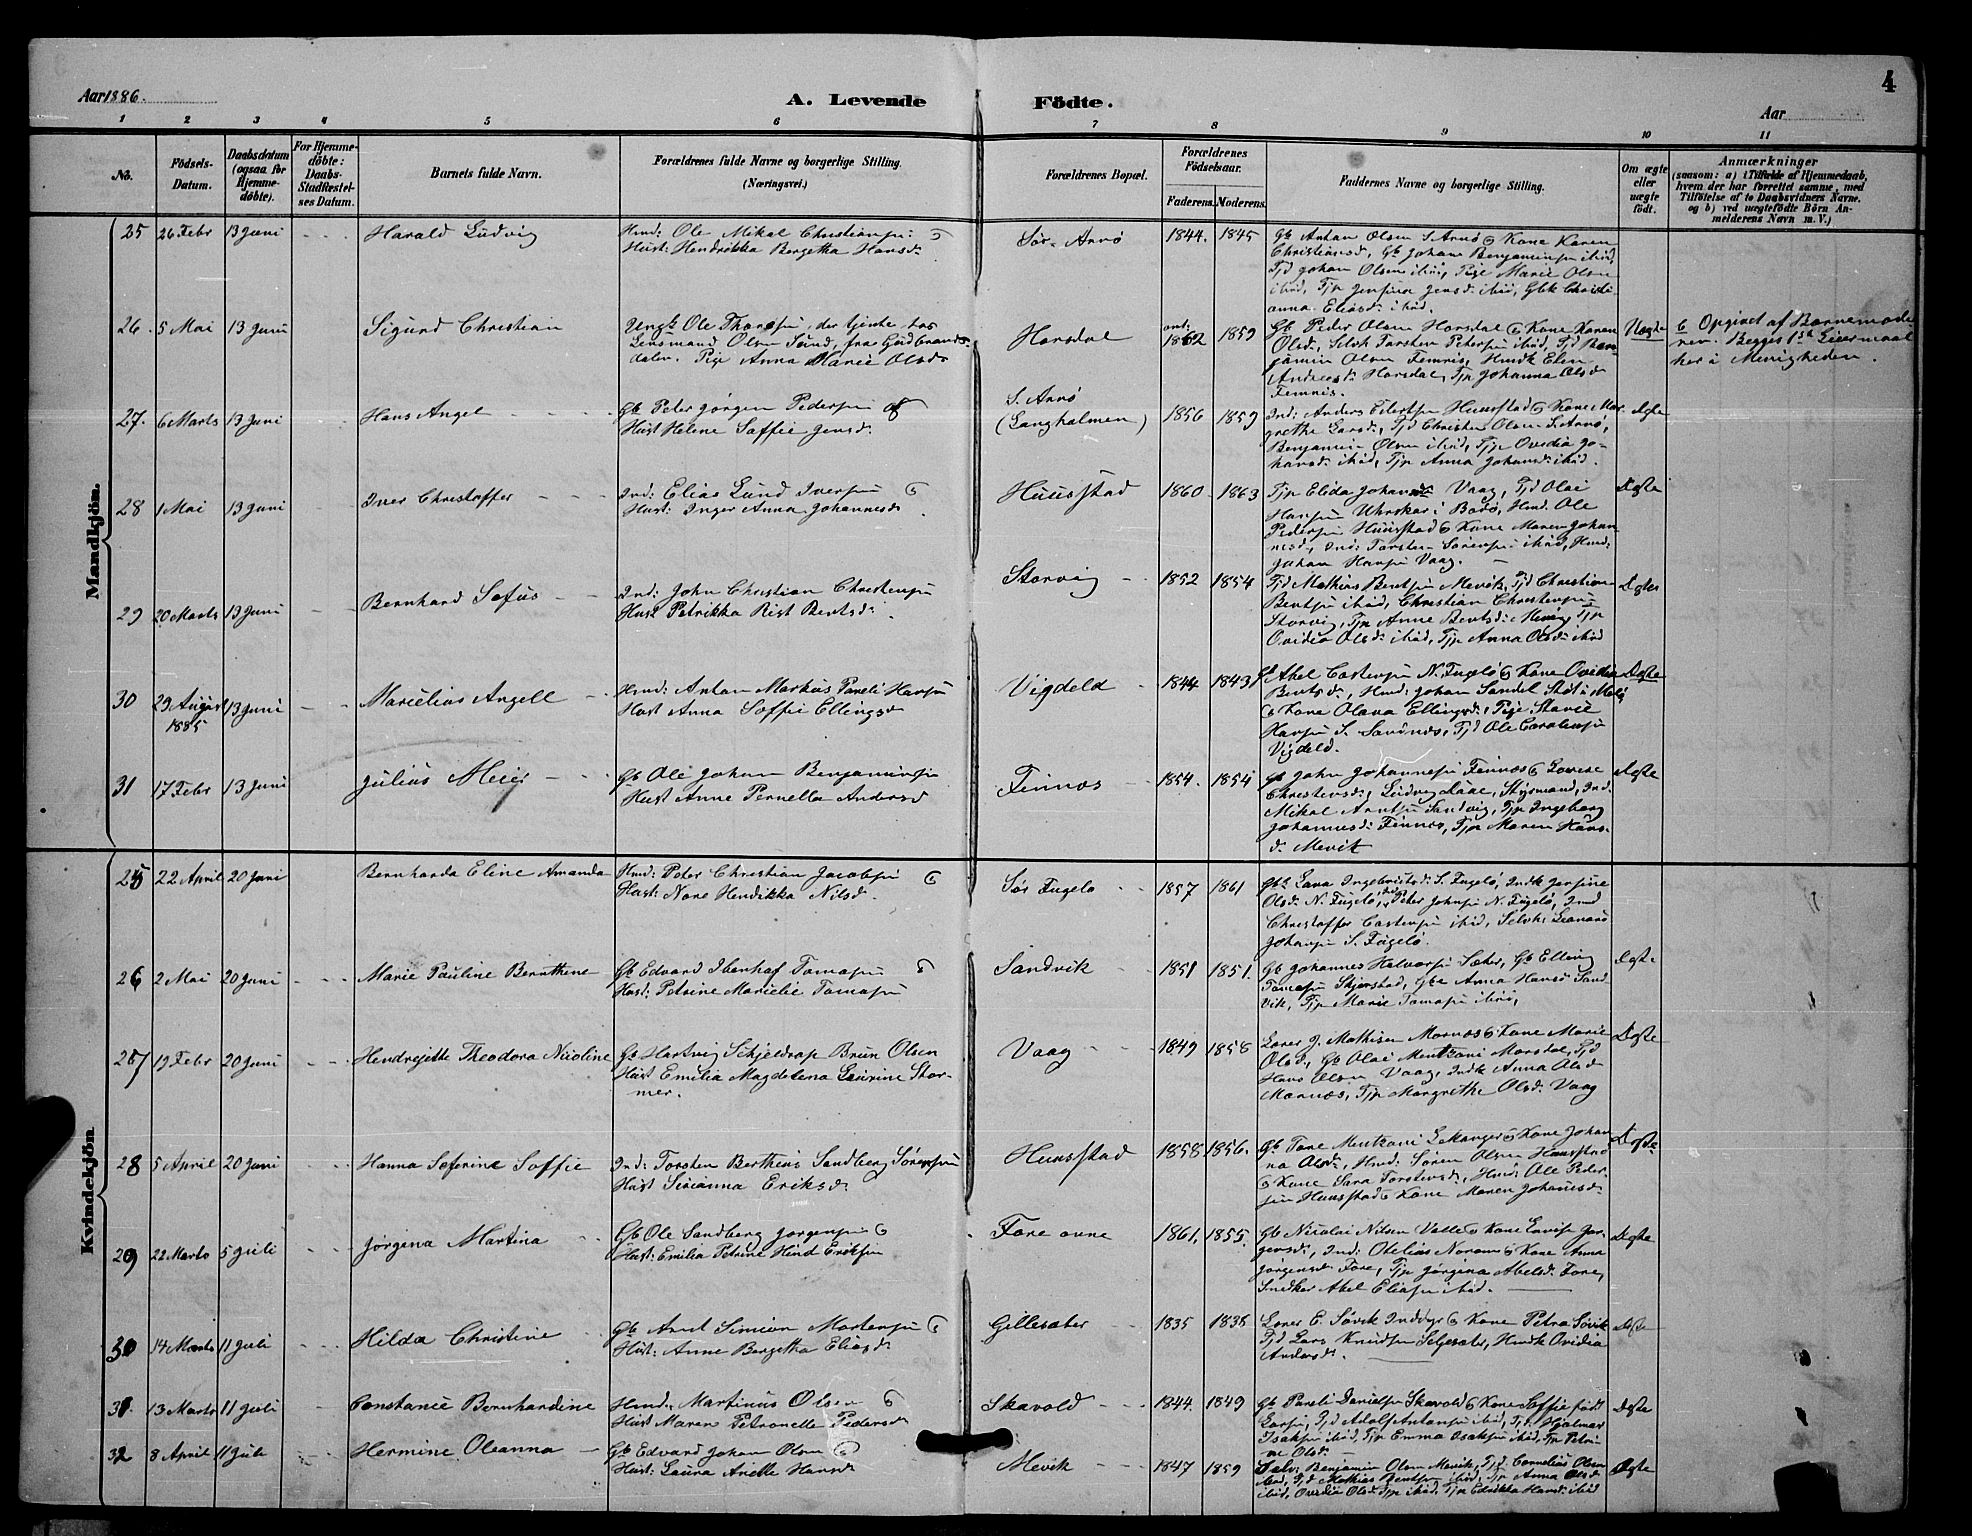 Aar 1886.
A. Levende Födte.
Aar
4
1 2 3 4 5 6 7 8 9 10 11
No.
Födsels-Datum.
Daabsdatum (ogsaa for Hjemme-döbte).
For Hjemme-döbte: Daabs-Stadfæstel-ses Datum.
Barnets fulde Navn.
Forældrenes fulde Navne og borgerlige Stilling. (Næringsvei.)
Forældrenes Bopæl.
Forældrenes Födselsaar.
Faderens. Moderens.
Faddernes Navne og borgerlige Stilling.
Om ægte eller uægte födt.
Anmærkninger
(saasom: a) i Tilfælde af Hjemmedaab,
hvem der har forrettet samme, med
Tilföielse af to Daabsvidners Navne.
og b) ved uægtefödte Börn An-
melderens Navn m. V.)
Mandkjön.
25 26 Febr 13 Juni Harald Ludvig
Hmd: Ole Mikal Christiansen
Hust: Hendrikka Bergetha Hansd:
Sør-Arnø 1844. 1845
Gb Antan Olsen S. Arnø & Kone Karen
Christiansd, Gb Johan Benjaminsen ibid,
Tjd Johan Olsen ibid, Pige Marie Olsen
ibid, Tjp Jensina Jensd: ibid, Gbk Christi-
anna Eliasd: ibid.
26. 5 Mai 13 Juni Sigurd Christian
Ungk: Ole Thoresen, der tjente hos
Lensmand Olsen Sund, fra Gudbrands-
dalen. Pige Anna Marie Olsd:
Horsdal ant: 1862 1859
Gb Peder Olsen Horsdal & Kone Karen
Olsd:, Selvk Torsten Pedersen ibid, Tjd Ben-
jamin Olsen Femris, Hmdk Elen
Andreasd: Horsdal, Tjp Johanna Olsd:
Femris.
Uægte
Opgivet af Barnemode-
ren. Begges 1ste Leiermaal
her i Menigheden.
27. 6 Marts 13 Juni Hans Angel
Gb Peter Jørgen Pedersen
Hust Helene Saffie Jensd:
S. Arnø (Langholmen) 1856 1859
Ind: Anders Edertsen Huusstad & Kone Mar-
grethe Larsd:, Tjd Christen Olsen S. Arnø,
Benjamin Olsen ibid, Tjp Ovidia Jo-
hansd: ibid, Tjp Anna Johansd: ibid.
Ægte
28 1 Mai 13 Juni Iver Christoffer
Ind: Elias Lund Iversen
Hust: Inger Anna Johannesd:
Huusstad 1860 1863
Tjp Elida Johansd: Vaag, Tjd Olai
Hansen Uhrskar i Bodø, Hmd: Ole
Pedersen Huusstad & Kone Maren Johan-
nesd, Ind: Torsten Sørensen ibid, Hmd:
Johan Hansen Vaag.
Ægte
29 20 Marts 13 Juni Bernhard Sofus
Ind: John Christian Christensen
Hust Petrikka Rist Bentsd:
Storvig 1852 1854
Tjd Mathias Bentsen Mevik, Tjd Christian
Bentsen ibid, Christian Christensen
Storvig, Tjp Anne Bentsd: Mevig, Tjp
Ovidia Olsd: ibid, Tjp Anna Olsd: ibid
Ægte
30 29 August 1885 13 Juni Marcelius Angell
Hmd: Antan Markus Pareli Hansen
Hust Anna Saffie Ellingsd:
Vigdeld 1844 1843
Gb Abel Castensen N. Fugelø & Kone Ovidia
Bentsd:, Hmd: Johan Sandel Støt i Melø
& Kone Olava Ellingsd:, Pige Marie
Hansen S. Sandnes, Tjd Ole Carolensen
Vigdeld.
Ægte
31 17 Febr 13 Juni Julius Meier
Gb Ole Johan Benjaminsen
Hust Anne Pernella Andersd
Finnæs 1854. 1854
Gb John Johannesen Finnæs & Lovise
Christensd:, Ludvig Laae, Styrmand, Ind.
Mikal Arntsen Sandvig, Tjp Ingeborg
Johannesd: Finnæs, Tjp Maren Hans-
d: Mevik
Ægte
Kvindekjön.
25 22 April 20 Juni Bernharda Eline Amanda
Hmd: Peter Christian Jacobsen
Hust: Nore Hendrikka Nilsd.
Sør Fugelø 1857 1861
Gbk Lava Ingebrigtsd: S. Fugelø, Indk Jensine
Olsd: N. Fugelø, Ind Peter Johnsen N. Fugelø, Ind
Christoffer Castensen ibid, Selvk: Leonard
Johansen S. Fugelø.
26 2 Mai 20 Juni Marie Pauline Bernthine
Gb Edvard Ibenhaf Tomasen
Hust: Petrine Marielie Tomasen
Sandvik 1851 1851.
Gb Johannes Halvorsen Sæter, Gb Elling
Tomasen Skjerstad, Gbk Anna Hansd Sand
vik, Tjp Marie Tomasen ibid,
Ægte
27 19 Febr 20 Juni Hendrejette Theodora Nicoline
Gb Hartvig Schjeldrap Brun Olsen
Hust Emilia Magdelena Laurine Stor-
mer.
Vaag 1849 1856
Lærer J. Mathisen Mornæs & Kone Marie
Olsd:, Gb Olai Mentzoni Marsdal, Tjd
Hans Olsen Vaag, Indk Anna Olsd
Mornæs, Tjp Margrethe Olsd: Vaag
Ægte
28 5 April 20 Juni Hanna Seferine Soffie
Ind: Torsten Bertheus Sandberg Sørensen
Hust Sirianna Eriksd:
Huusstad 1858 1856.
Gb Tore Mentzoni Lekanger & Kone Johan
na Olsd:, Hmd: Søren Olsen Huusstad
& Kone Sara Torstensd:, Hmd: Ole Peder-
sen Huusstad & Kone Maren Johansd:
Ægte
29 22 Marts 5 Juli Jørgina Martina
Gb Ole Sandberg Jørgensen
Hust: Emilia Petrine Hind Eriksen
Fore øvre 1861. 1855.
Gb Nicolai Nilsen Valle & Kone Lovise Jør-
gensd:, Ind: Otelius Noram & Kone Anna
Jørgensd: Fore, Tjp Jørgina Abelsd: Fore,
Snedker Abel Eliasen ibid.
Ægte
30 14 Marts 11 Juli Hilda Christine
Gb Arnt Simion Mortensen
Hust: Anne Bergetha Eliasd:
Gillesæter 1835 1838
Lærer E. Søvik Inddyr & Kone Petra Søvik
Tjd Lars Knudsen Seljesæter, Hmdk Ovidia
Andersd:
Ægte
31 13 Marts 11 Juli Constance Bernhardine
Hmd. Martinus Olsen
Hust Maren Petronelle Pedersd
Skavold 1844 1849
Gb Pareli Danielsen Skavold & Kone Soffie født
Larsen, Tjd Adolf Antansen ibid, Tjd Hjalmar
Isaksen ibid, Tjp Emma Isaksen ibid, Tjp Petri-
ne Olsd:
Ægte
32 8 April 11 Juli Hermine Oleanna
Gb Edvard Johan Olsen
Hust: Laura Ariette Hansd:
Mevik 1847 1859
Selv: Benjamin Olsen Mevik, Tjd: Cornelius Olsen
ibid, Tjd Mathias Bentsen ibid, Tjp Anna Olsd
ibid, Ovidia Olsd: Tjp ibid. Tjp Edrikka Hansd: ibid
Ægte